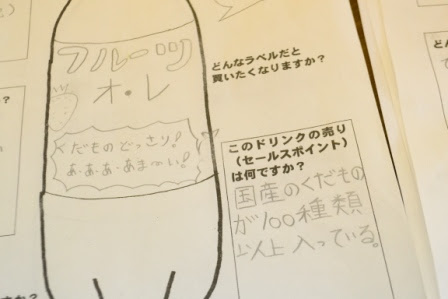 フルーツ
オ・レ
くだものどっさり!
あ・あ・あ・あま〜い!
どんなラベルだと
買いたくなりますか?
このドリンクの売り
(セールスポイント)
は何ですか?
国産のくだもの
が100種類
以上入っている。
ますか?